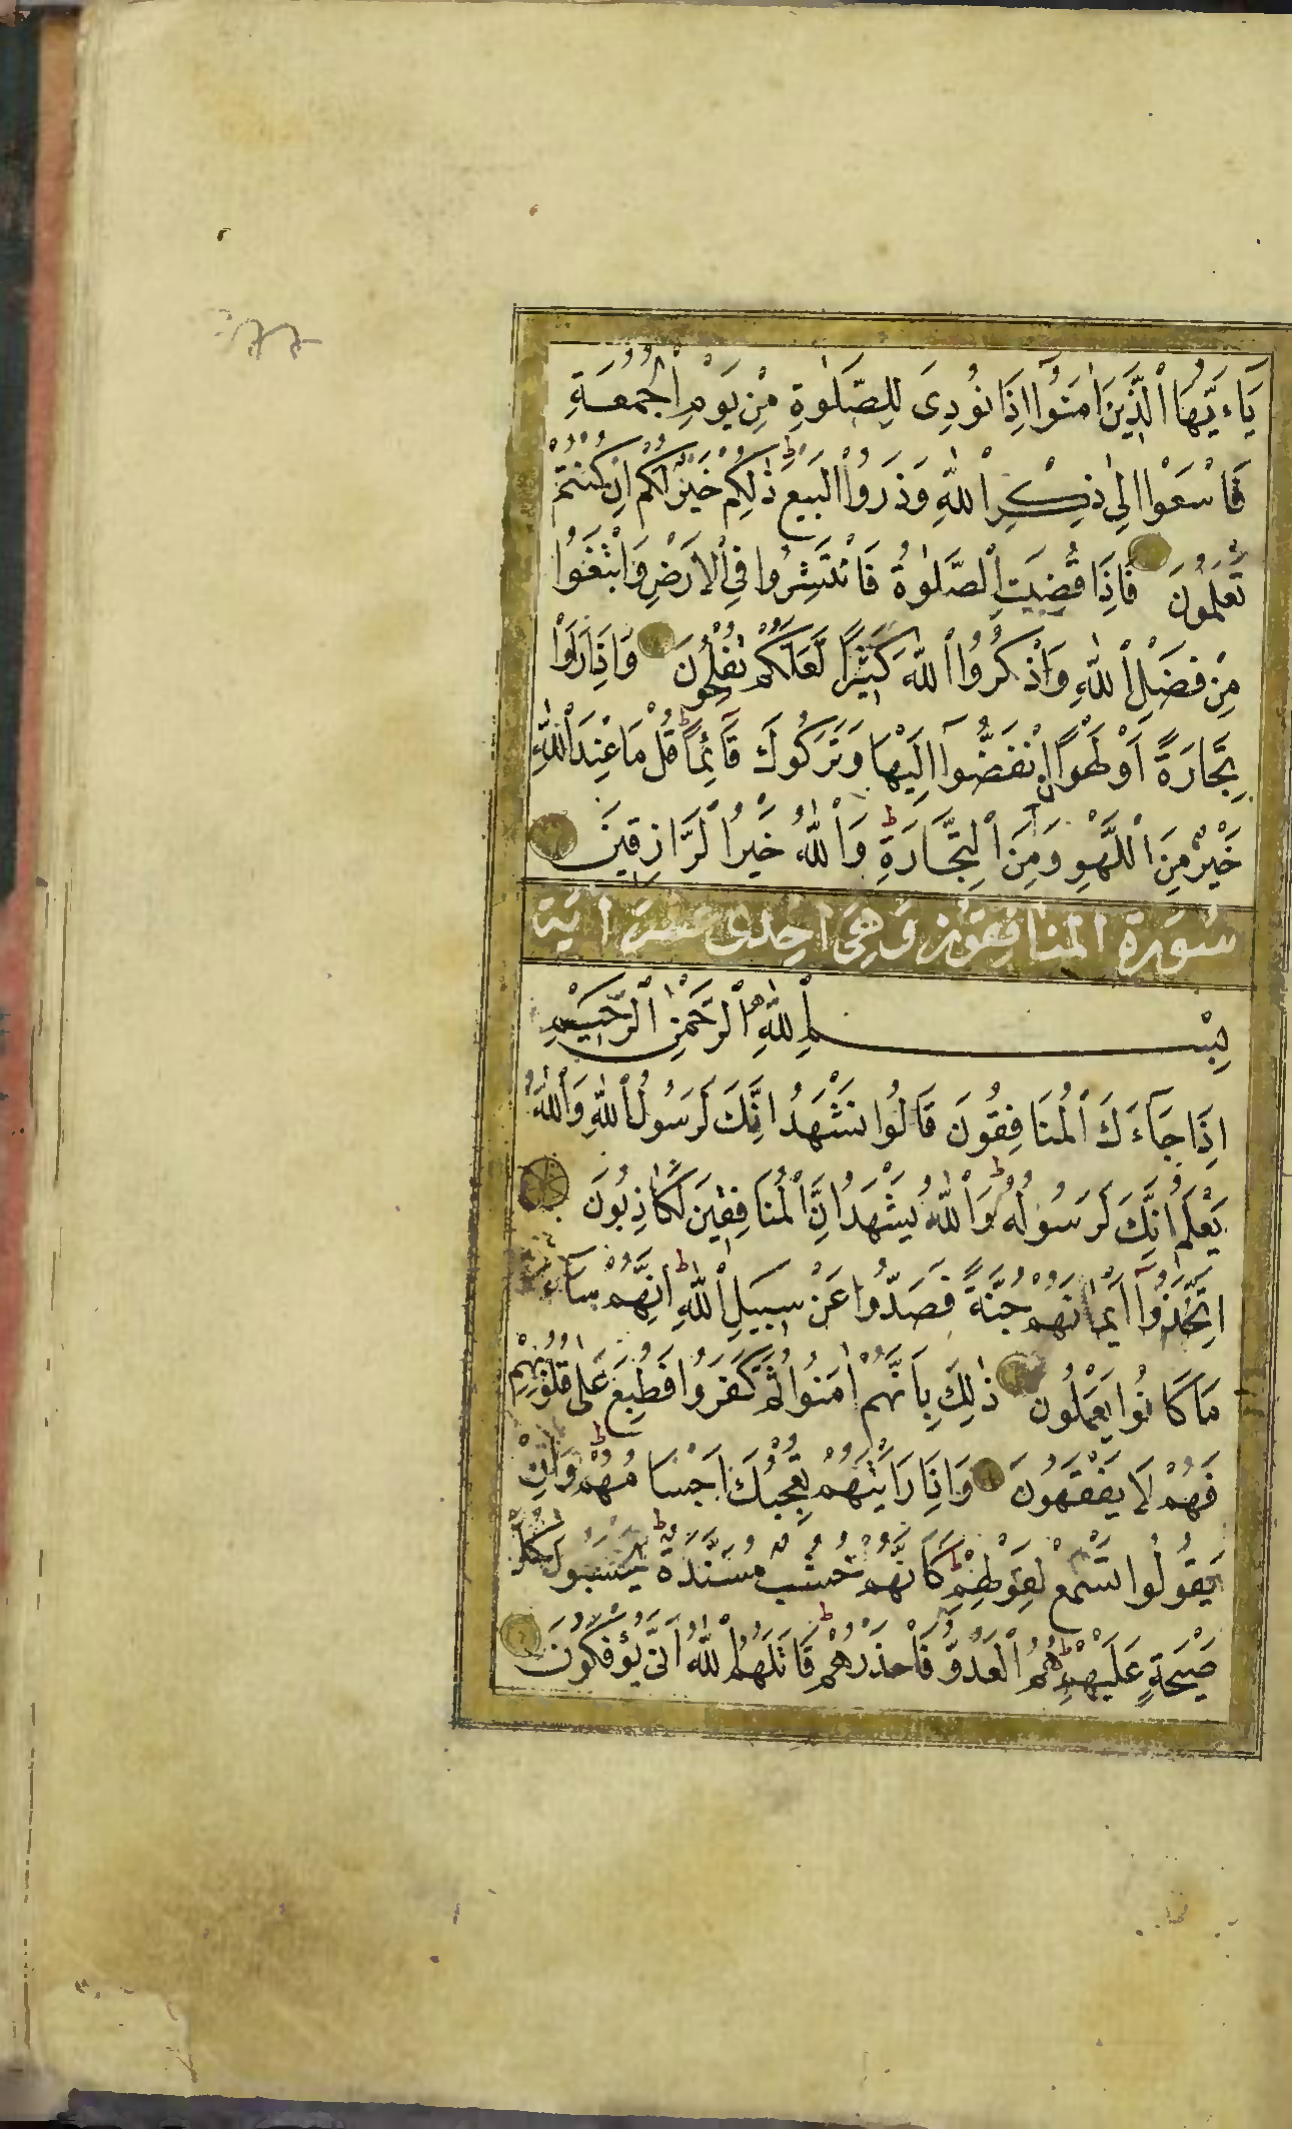 يَاءَيُّهَا الَّذِينَ اٰمَنُوٓا اِذَا نُودِىَ لِلصَّلٰوةِ مِنْ يَوْمِ الْجُمُعَةِ
فَاسْعَوْا اِلٰى ذِكْرِ اللّٰهِ وَذَرُوا الْبَيْعَ ط ذٰلِكُمْ خَيْرٌ لَكُمْ اِنْ كُنْتُمْ
تَعْلَمُونَ فَاِذَا قُضِيَتِ الصَّلٰوةُ فَانْتَشِرُوا فِى الْاَرْضِ وَابْتَغُوا
مِنْ فَضْلِ اللّٰهِ وَاذْكُرُوا اللّٰهَ كَثِيرًا لَعَلَّكُمْ تُفْلِحُونَ وَاِذَا رَاَوْا
تِجَارَةً اَوْ لَهْوًا انْفَضُّوٓا اِلَيْهَا وَتَرَكُوكَ قَآئِمًا ط قُلْ مَا عِنْدَ اللّٰهِ
خَيْرٌ مِنَ اللَّهْوِ وَمِنَ التِّجَارَةِ ط وَاللّٰهُ خَيْرُ الرَّازِقِينَ
سُورَة المنَافِقُون وَهِىَ اِحْدى عَشَرَ ايَة
بِسْمِ اللّٰهِ الرَّحْمٰنِ الرَّحِيمِ
اِذَا جَآءَكَ الْمُنَافِقُونَ قَالُوا نَشْهَدُ اِنَّكَ لَرَسُولُ اللّٰهِ وَاللّٰهُ
يَعْلَمُ اِنَّكَ لَرَسُولُهُ ط وَاللّٰهُ يَشْهَدُ اِنَّ الْمُنَافِقِينَ لَكَاذِبُونَ
اِتَّخَذُوٓا اَيْمَانَهُمْ جُنَّةً فَصَدُّوا عَنْ سَبِيلِ اللّٰهِ ط اِنَّهُمْ سَآءَ
مَا كَانُوا يَعْمَلُونَ ذٰلِكَ بِاَنَّهُمْ اٰمَنُوا ثُمَّ كَفَرُوا فَطُبِعَ عَلٰى قُلُوبِهِمْ
فَهُمْ لَا يَفْقَهُونَ وَاِذَا رَاَيْتَهُمْ تُعْجِبُكَ اَجْسَامُهُمْ ط وَاِنْ
يَقُولُوا تَسْمَعْ لِقَوْلِهِمْ ط كَاَنَّهُمْ خُشُبٌ مُسَنَّدَةٌ ط يَحْسَبُونَ كُلَّ
صَيْحَةٍ عَلَيْهِمْ ط هُمُ الْعَدُوُّ فَاحْذَرْهُمْ ط قَاتَلَهُمُ اللّٰهُ اَنّٰى يُؤْفَكُونَ